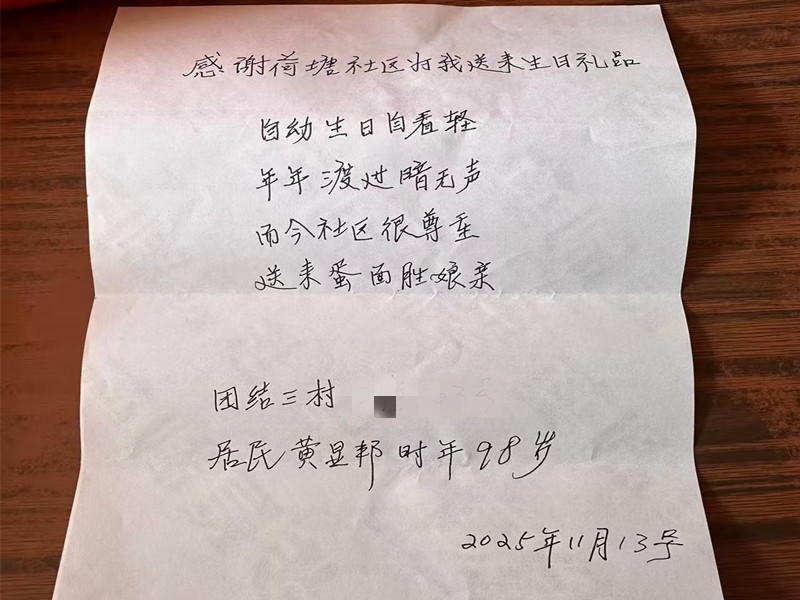 感谢荷塘社区对我送来生日礼品
自幼生日自看轻
年年渡过暗无声
而今社区很尊重
送来蛋面胜娘亲
团结三村
居民黄显邦时年98岁
2025年11月13号